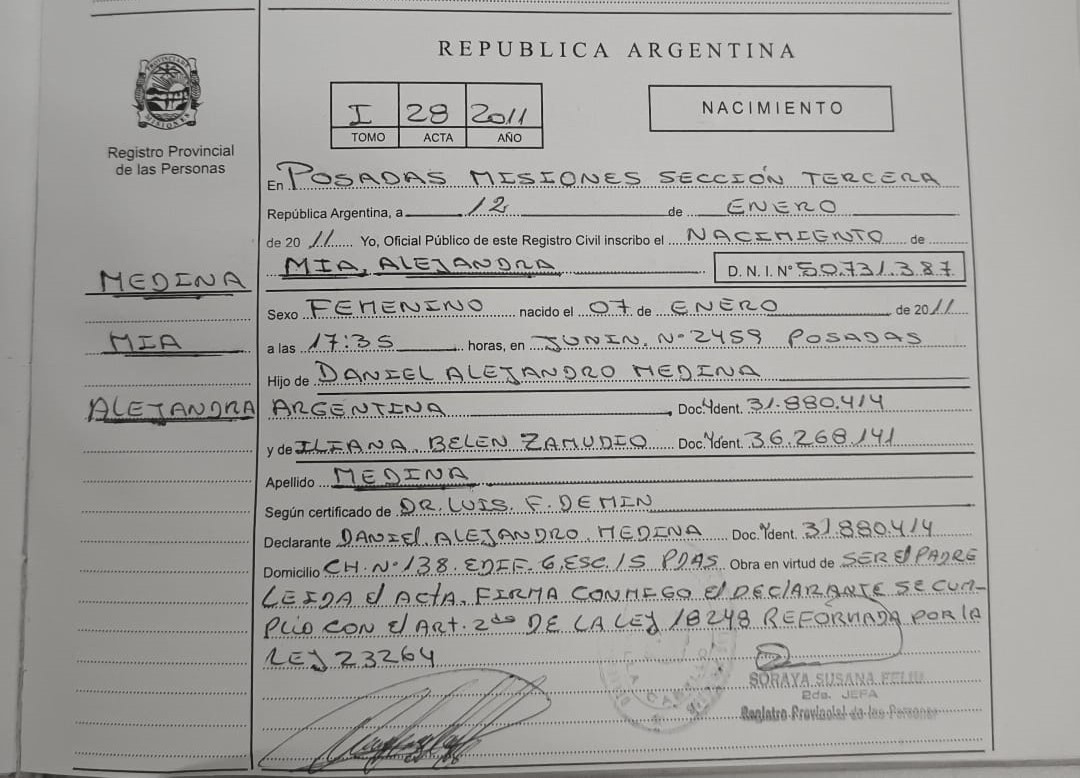 REPUBLICA ARGENTINA
PROVINCIA DE
MISIONES
Registro Provincial
de las Personas
I 28 2011
TOMO ACTA AÑO
NACIMIENTO
En POSADAS MISIONES SECCIÓN TERCERA
República Argentina, a 12 de ENERO
de 20 11 Yo, Oficial Público de este Registro Civil inscribo el NACIMIENTO de
MIA, ALEJANDRA D. N. I. Nº 50.731.387
MEDINA
MIA
ALEJANDRA
Sexo FEMENINO nacido el 07 de ENERO de 2011
a las 17:35 horas, en JUNIN. Nº 2459 POSADAS
Hijo de DANIEL ALEJANDRO MEDINA
ARGENTINA Doc. Ydent. 31.880.414
y de ILIANA BELEN ZAMUDIO Doc. Ydent. 36.268.141
Apellido MEDINA
Según certificado de DR. LUIS. F. DEMIN
Declarante DANIEL ALEJANDRO MEDINA Doc. Ydent. 31.880.414
Domicilio CH. Nº 138. EDIF. 6, ESC. 15 PDAS. Obra en virtud de SER El PADRE
LEIDA El ACTA, FIRMA CONMIGO El DEClARANTE SE CUM-
PLIO CON El ART. 2do DE LA LEY 18248 REFORMADA POR lA
LEY 23264
SORAYA SUSANA
2da. JEFA
Registro Provincial de las Personas